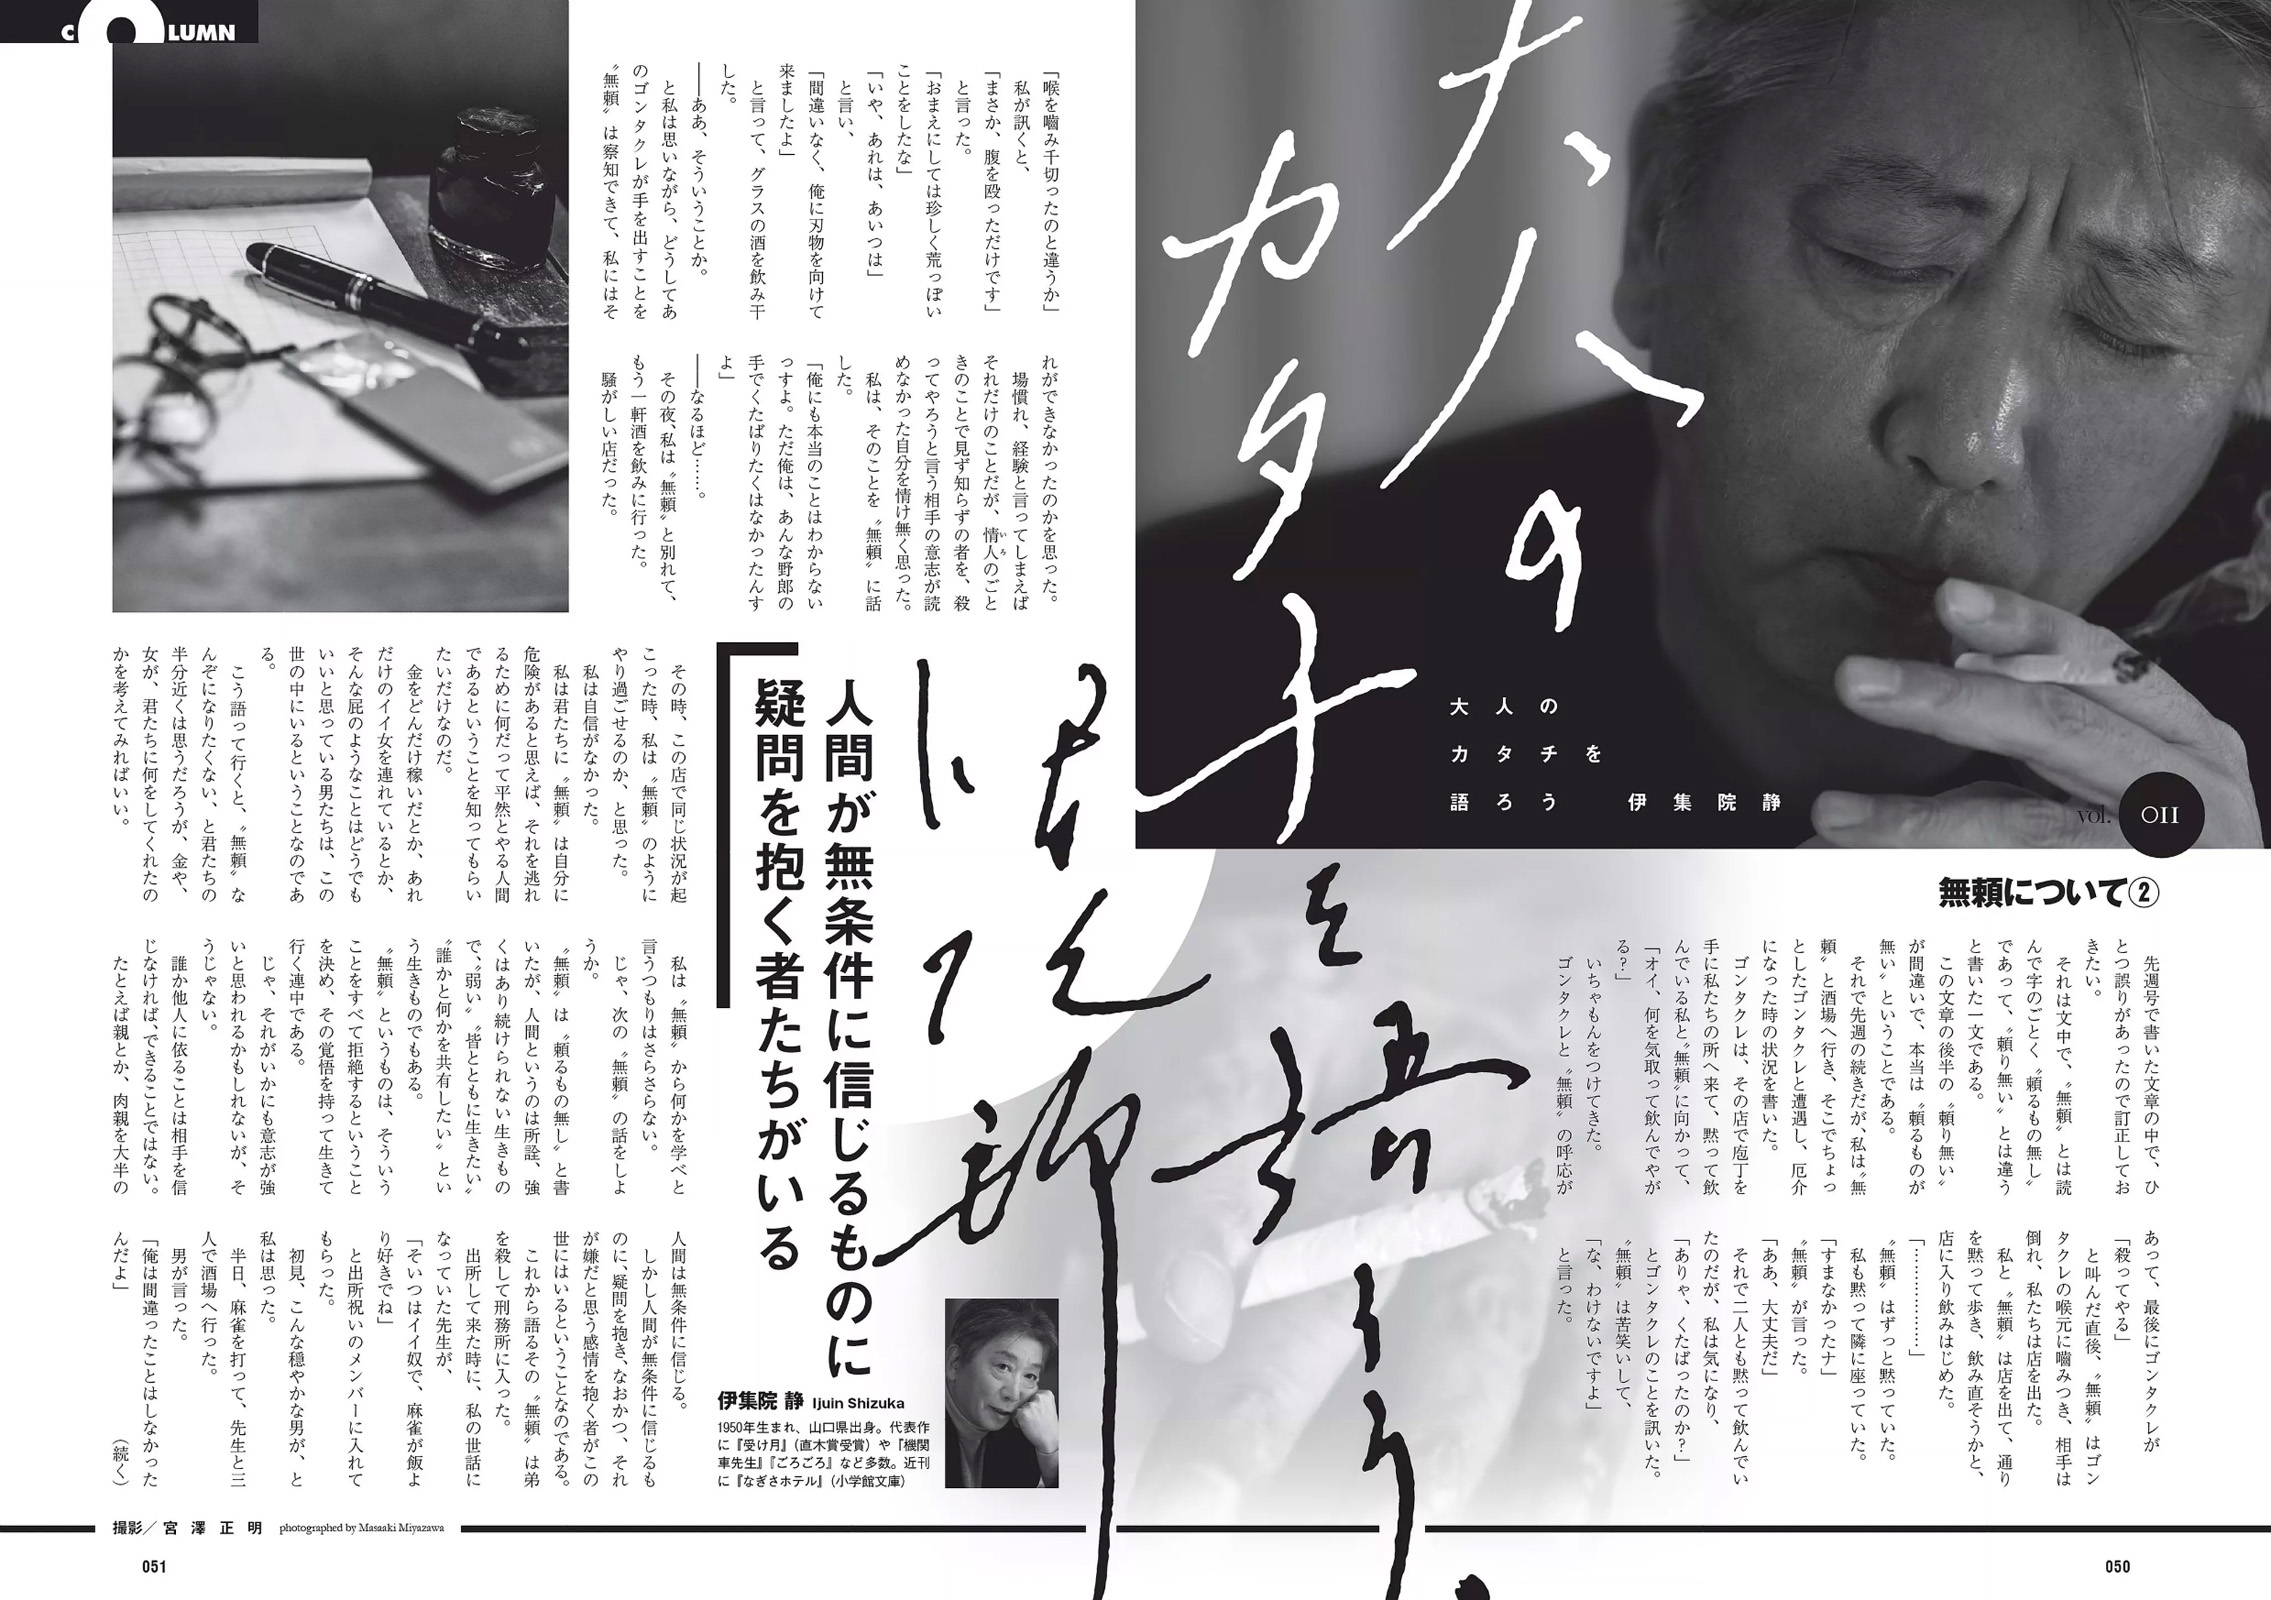 COLUMN
大人の
カタチ
を
語ろう。
伊集院静
大人の
カタチを
語ろう　伊集院静
vol. 011
無頼について②
　先週号で書いた文章の中で、ひ
とつ誤りがあったので訂正してお
きたい。
　それは文中で、〝無頼〟とは読
んで字のごとく〝頼るもの無し〟
であって、〝頼り無い〟とは違う
と書いた一文である。
　この文章の後半の〝頼り無い〟
が間違いで、本当は〝頼るものが
無い〟ということである。
　それで先週の続きだが、私は〝無
頼〟と酒場へ行き、そこでちょっ
としたゴンタクレと遭遇し、厄介
になった時の状況を書いた。
　ゴンタクレは、その店で庖丁を
手に私たちの所へ来て、黙って飲
んでいる私と〝無頼〟に向かって、
「オイ、何を気取って飲んでやが
る?」
　いちゃもんをつけてきた。
　ゴンタクレと〝無頼〟の呼応が
あって、最後にゴンタクレが
「殺ってやる」
　と叫んだ直後、〝無頼〟はゴン
タクレの喉元に嚙みつき、相手は
倒れ、私たちは店を出た。
　私と〝無頼〟は店を出て、通り
を黙って歩き、飲み直そうかと、
店に入り飲みはじめた。
「………………」
〝無頼〟はずっと黙っていた。
　私も黙って隣に座っていた。
「すまなかったナ」
〝無頼〟が言った。
「ああ、大丈夫だ」
　それで二人とも黙って飲んでい
たのだが、私は気になり、
「ありゃ、くたばったのか?」
　とゴンタクレのことを訊いた。
〝無頼〟は苦笑いして、
「な、わけないですよ」
　と言った。
「喉を嚙み千切ったのと違うか」
　私が訊くと、
「まさか、腹を殴っただけです」
　と言った。
「おまえにしては珍しく荒っぽい
ことをしたな」
「いや、あれは、あいつは」
　と言い、
「間違いなく、俺に刃物を向けて
来ましたよ」
　と言って、グラスの酒を飲み干
した。
──ああ、そういうことか。
　と私は思いながら、どうしてあ
のゴンタクレが手を出すことを
〝無頼〟は察知できて、私にはそ
れができなかったのかを思った。
　場慣れ、経験と言ってしまえば
それだけのことだが、情人のごと
いろ
きのことで見ず知らずの者を、殺
ってやろうと言う相手の意志が読
めなかった自分を情け無く思った。
　私は、そのことを〝無頼〟に話
した。
「俺にも本当のことはわからない
っすよ。ただ俺は、あんな野郎の
手でくたばりたくはなかったんす
よ」
──なるほど……。
　その夜、私は〝無頼〟と別れて、
もう一軒酒を飲みに行った。
　騒がしい店だった。
人間が無条件に信じるものに
疑問を抱く者たちがいる
　その時、この店で同じ状況が起
こった時、私は〝無頼〟のように
やり過ごせるのか、と思った。
　私は自信がなかった。
　私は君たちに〝無頼〟は自分に
危険があると思えば、それを逃れ
るために何だって平然とやる人間
であるということを知ってもらい
たいだけなのだ。
　金をどんだけ稼いだとか、あれ
だけのイイ女を連れているとか、
そんな屁のようなことはどうでも
いいと思っている男たちは、この
世の中にいるということなのであ
る。
　こう語って行くと、〝無頼〟な
んぞになりたくない、と君たちの
半分近くは思うだろうが、金や、
女が、君たちに何をしてくれたの
かを考えてみればいい。
　私は〝無頼〟から何かを学べと
言うつもりはさらさらない。
　じゃ、次の〝無頼〟の話をしよ
うか。
〝無頼〟は〝頼るもの無し〟と書
いたが、人間というのは所詮、強
くはあり続けられない生きもの
で、〝弱い〟〝皆とともに生きたい〟
〝誰かと何かを共有したい〟とい
う生きものでもある。
〝無頼〟というものは、そういう
ことをすべて拒絶するということ
を決め、その覚悟を持って生きて
行く連中である。
　じゃ、それがいかにも意志が強
いと思われるかもしれないが、そ
うじゃない。
　誰か他人に依ることは相手を信
じなければ、できることではない。
　たとえば親とか、肉親を大半の
人間は無条件に信じる。
　しかし人間が無条件に信じるも
のに、疑問を抱き、なおかつ、それ
が嫌だと思う感情を抱く者がこの
世にはいるということなのである。
　これから語るその〝無頼〟は弟
を殺して刑務所に入った。
　出所して来た時に、私の世話に
なっていた先生が、
「そいつはイイ奴で、麻雀が飯よ
り好きでね」
　と出所祝いのメンバーに入れて
もらった。
　初見、こんな穏やかな男が、と
私は思った。
　半日、麻雀を打って、先生と三
人で酒場へ行った。
　男が言った。
「俺は間違ったことはしなかった
んだよ」
（続く）
伊集院 静 Ijuin Shizuka
1950年生まれ、山口県出身。代表作
に『受け月』（直木賞受賞）や『機関
車先生』『ごろごろ』など多数。近刊
に『なぎさホテル』（小学館文庫）
撮影／宮澤正明 photographed by Masaaki Miyazawa
051
050